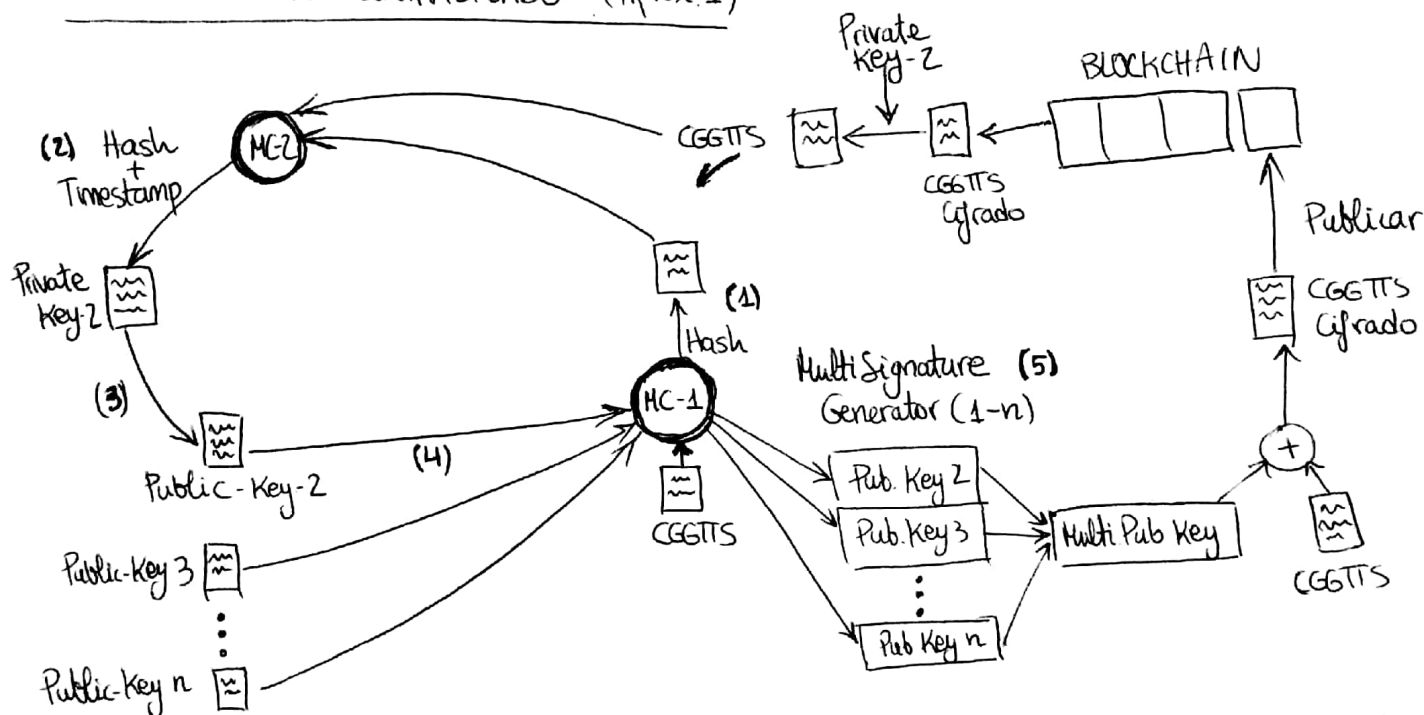 Private
Key-2
BLOCKCHAIN
(2) Hash
+
Timestamp
MC-2
CGGTTS
CGGTTS
Cifrado
Publicar
Private
Key-2
(1)
Hash
CGGTTS
Cifrado
(3)
MC-1
MultiSignature (5)
Generator (1-n)
(4)
Public-Key-2
Pub. Key 2
+
CGGTTS
Pub. Key 3
Multi Pub Key
Public-Key 3
CGGTTS
Pub Key n
Public-Key n